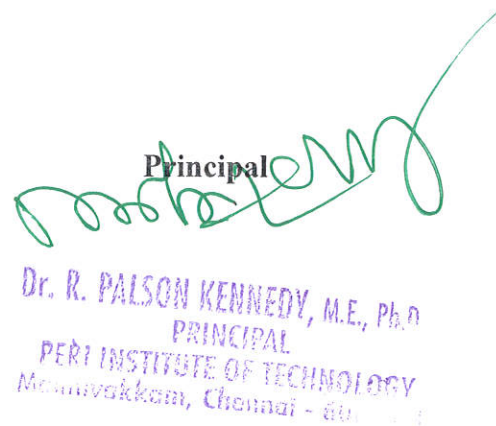 Principal
Dr. R. PALSON KENNEDY, M.E., Ph.D
PRINCIPAL
PERI INSTITUTE OF TECHNOLOGY
Mannivakkam, Chennai -